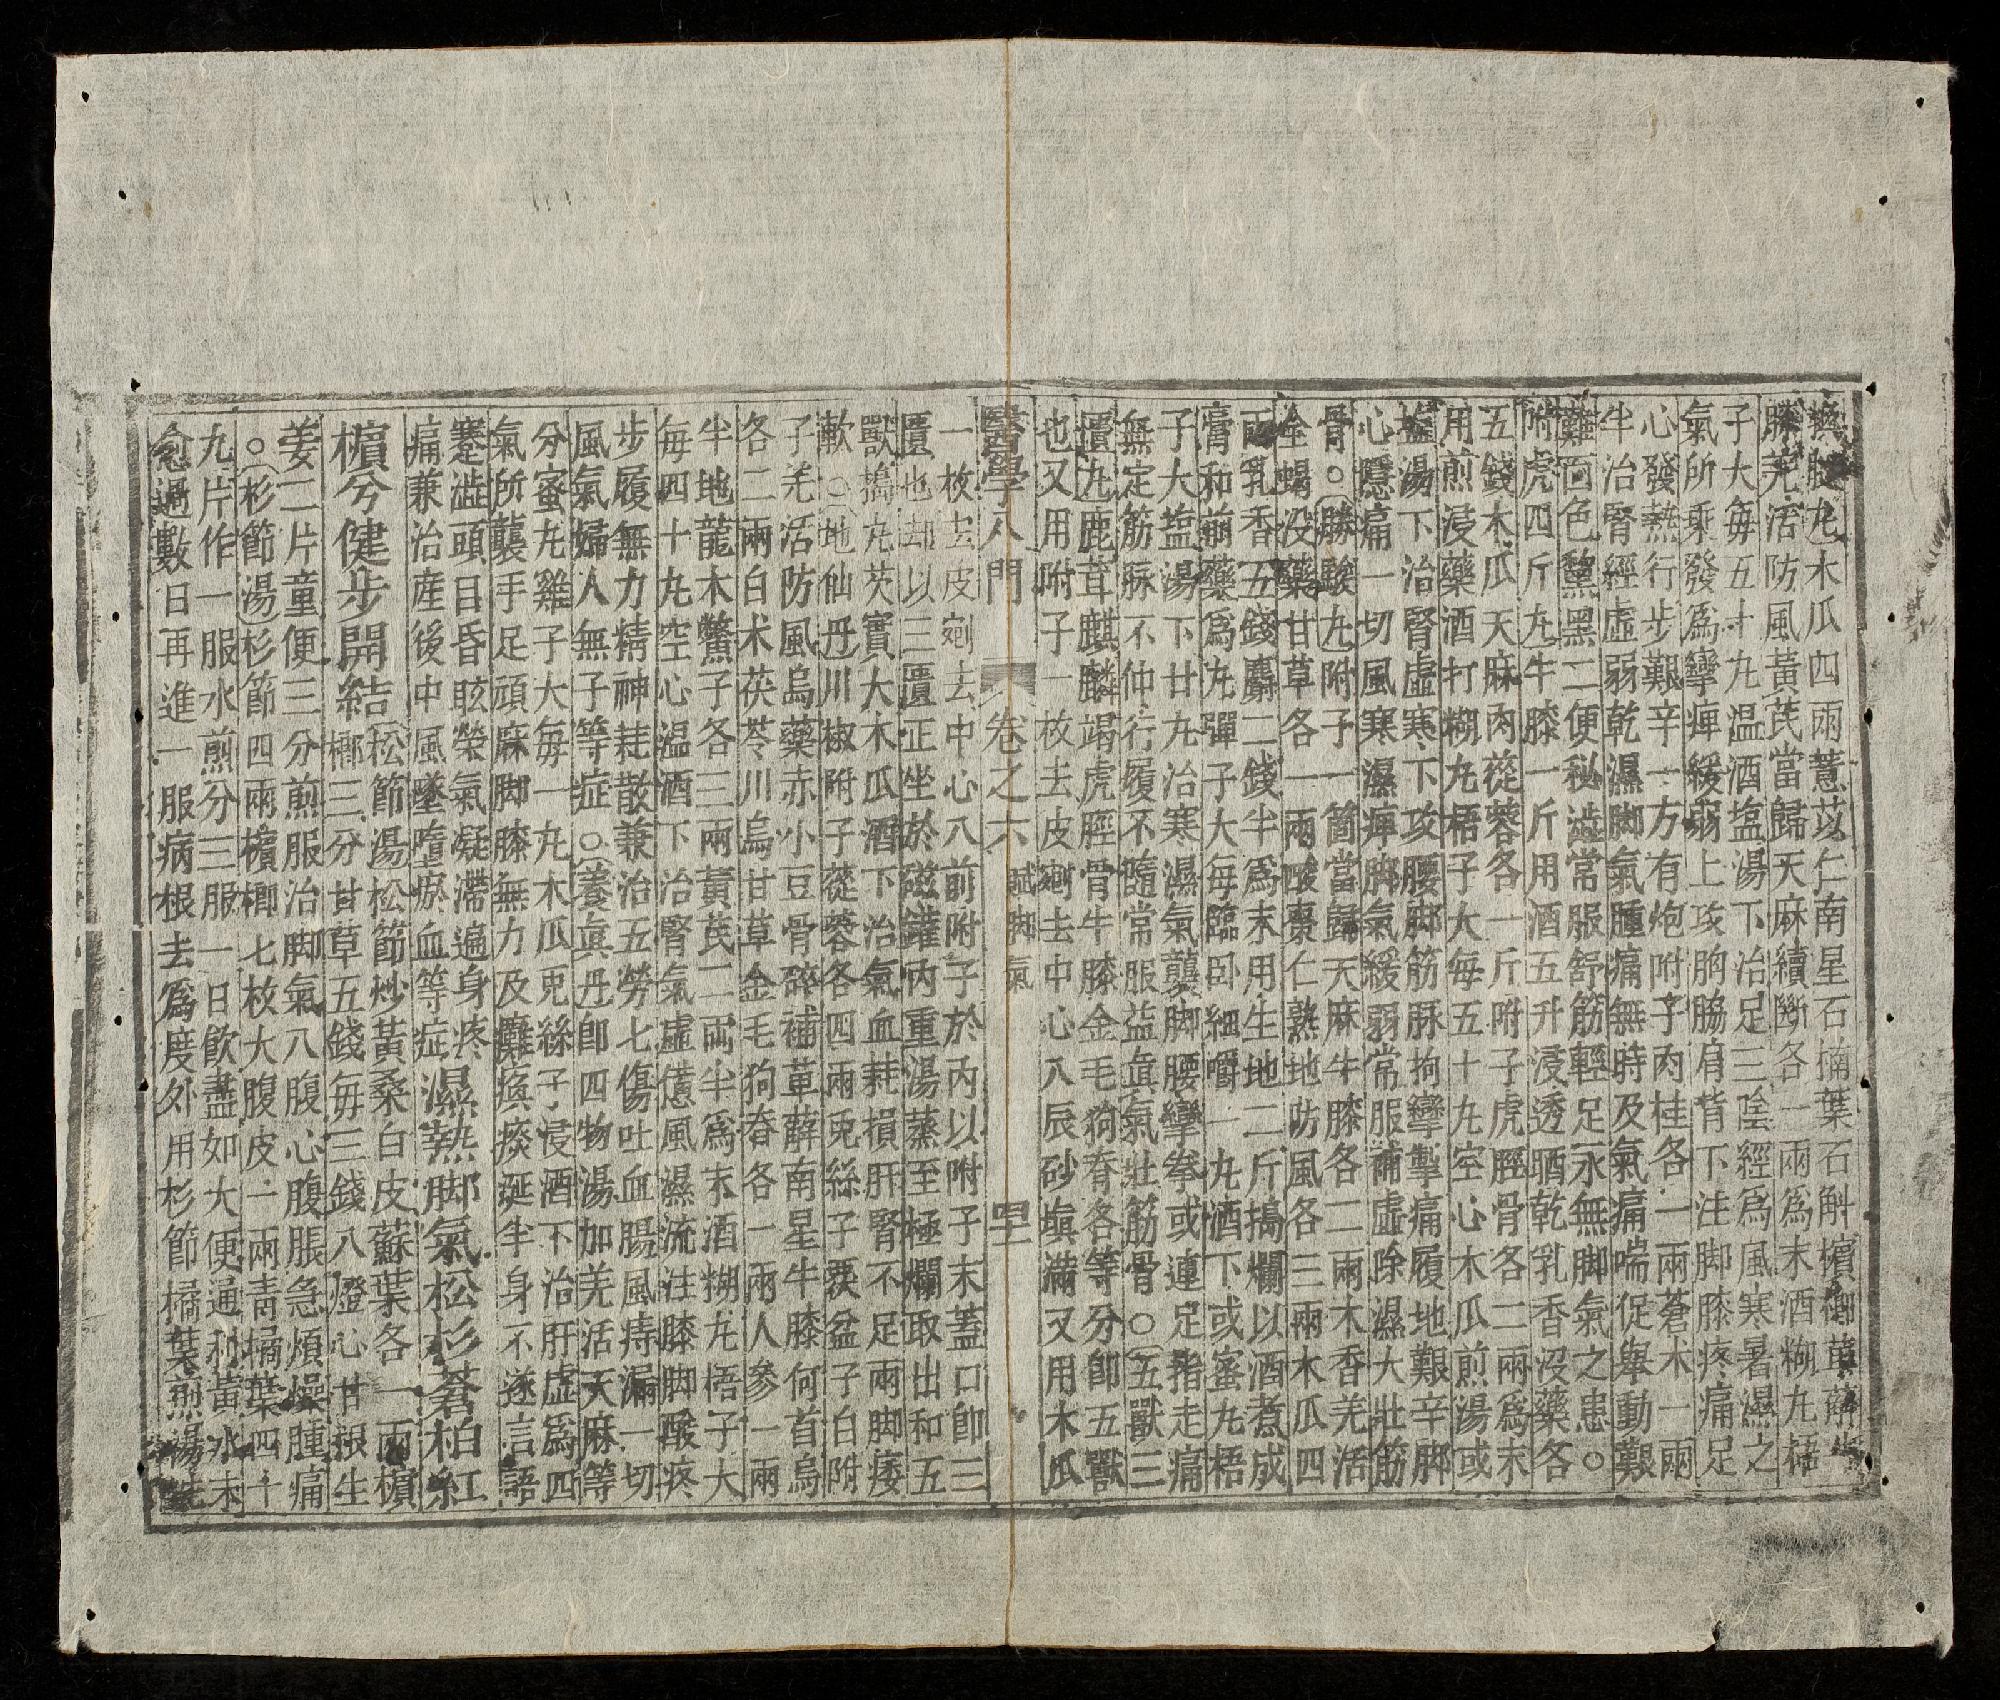 換腿丸木瓜四兩薏苡仁南星石楠葉石斛檳榔萆薢牛
膝羌活防風黃芪當歸天麻續斷各一兩爲末酒糊丸梧
子大每五十丸温酒塩湯下治足三陰經爲風寒暑濕之
氣所乘發爲攣痺緩弱上攻胸脇肩背下注脚膝疼痛足
心發熱行步艱辛一方有炮附子肉桂各一兩蒼朮一兩
半治腎經虛弱乾濕脚氣腫痛無時及氣痛喘促舉動艱
難面色黧黑二便秘澁常服舒筋輕足永無脚氣之患○
附虎四斤丸牛膝一斤用酒五升浸透晒乾乳香没藥各
五錢木瓜天麻肉蓯蓉各一斤附子虎脛骨各二兩爲末
用煎浸藥酒打糊丸梧子大每五十丸空心木瓜煎湯或
塩湯下治腎虛寒下攻腰脚筋脉拘攣掣痛履地艱辛脚
心隱痛一切風寒濕痺脚氣緩弱常服補虛除濕大壯筋
骨○勝駿丸附子一箇當歸天麻牛膝各二兩木香羌活
全蝎没藥甘草各一兩酸棗仁熟地防風各三兩木瓜四
兩乳香五錢麝二錢半爲末用生地二斤搗爛以酒煮成
膏和前藥爲丸彈子大每臨卧細嚼一丸酒下或蜜丸梧
子大塩湯下廿丸治寒濕氣襲脚腰攣拳或連足指走痛
無定筋脉不伸行履不隨常服益眞氣壯筋骨○五獸三
匱丸鹿茸麒麟竭虎脛骨牛膝金毛狗脊各等分卽五獸
也又用附子一枚去皮剜去中心入辰砂塡滿又用木瓜
醫學入門 卷之六 賦脚氣 四十一
一枚去皮剜去中心入前附子於內以附子末蓋口卽三
匱也却以三匱正坐於磁罐內重湯蒸至極爛取出和五
獸搗丸芡實大木瓜酒下治氣血耗損肝腎不足兩脚痿
軟○地仙丹川椒附子蓯蓉各四兩兎絲子覆盆子白附
子羌活防風烏藥赤小豆骨碎補萆薢南星牛膝何首烏
各二兩白朮茯苓川烏甘草金毛狗脊各一兩人參一兩
半地龍木鱉子各三兩黃芪二兩半爲末酒糊丸梧子大
每四十丸空心温酒下治腎氣虛憊風濕流注膝脚酸疼
步履無力精神耗散兼治五勞七傷吐血腸風痔漏一切
風氣婦人無子等症○養眞丹卽四物湯加羌活天麻等
分蜜丸雞子大每一丸木瓜兎絲子浸酒下治肝虛爲四
氣所襲手足頑麻脚膝無力及癱瘓痰涎半身不遂言語
蹇澁頭目昏眩榮氣凝滯遍身疼
痛兼治産後中風墜墮瘀血等症濕熱脚氣松杉蒼柏紅
檳兮健步開結松節湯松節炒黃桑白皮蘇葉各一兩檳
榔三分甘草五錢每三錢入燈心廿根生
姜二片童便三分煎服治脚氣入腹心腹脹急煩燥腫痛
○杉節湯杉節四兩檳榔七枚大腹皮一兩青橘葉四十
九片作一服水煎分三服一日飮盡如大便通利黃水未
愈過數日再進一服病根去爲度外用杉節橘葉煎湯洗